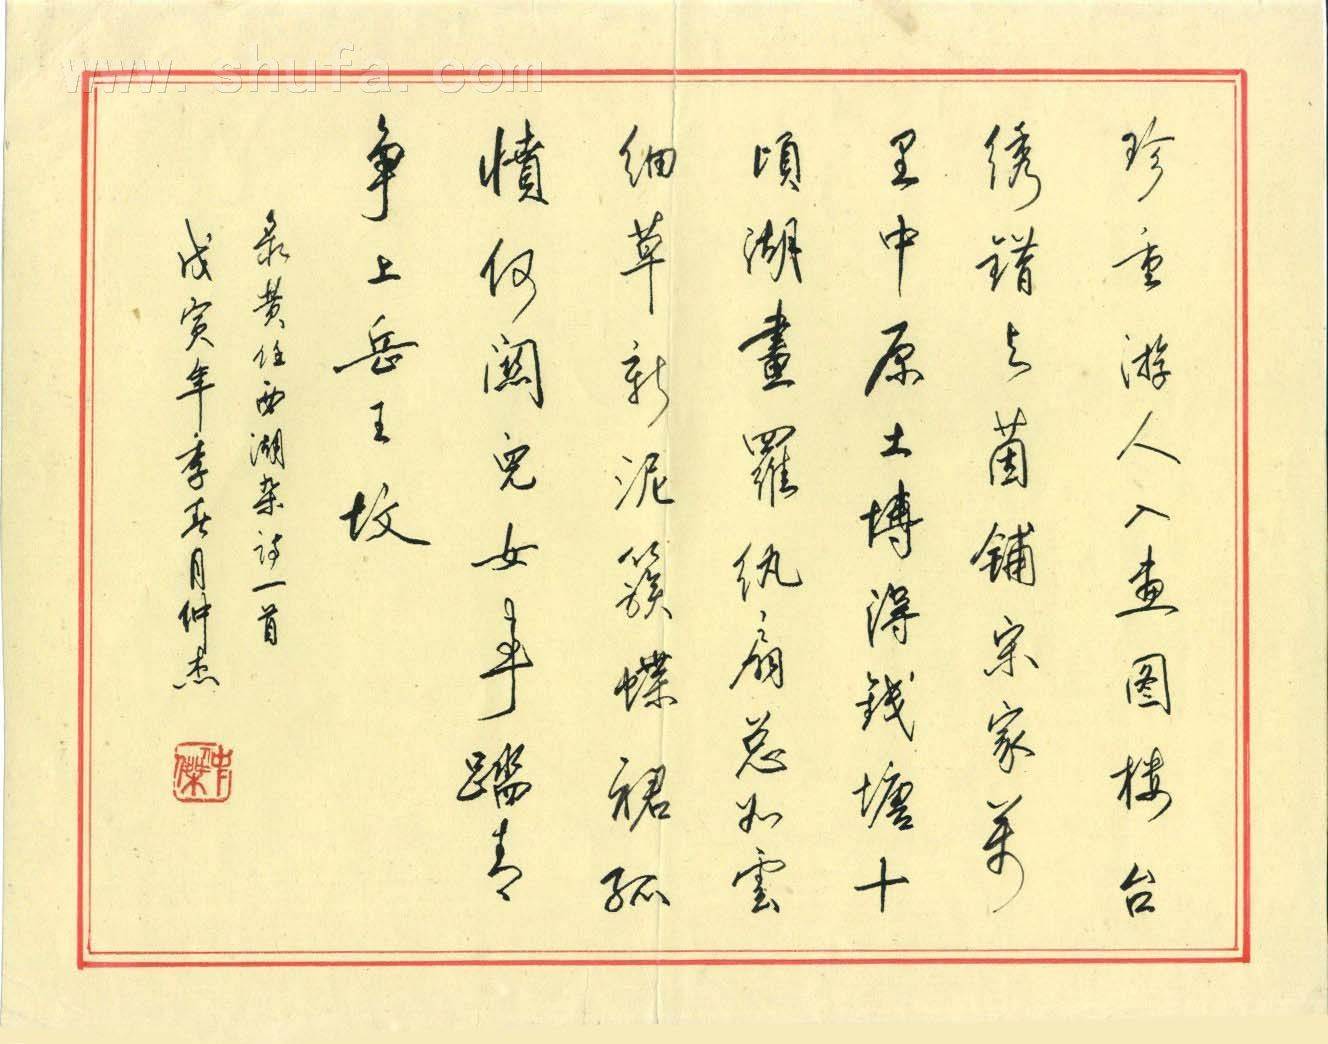 www.shufa.com
珍重游人入画图楼台
绣错与茵铺宋家萬
里中原土博得钱塘十
頃湖畫羅纨扇总如雲
细草新泥簇蝶裙孤
憤何関兒女事踏青
争上岳王坟
录黄任西湖杂诗一首
戊寅年季春月仲杰
仲傑